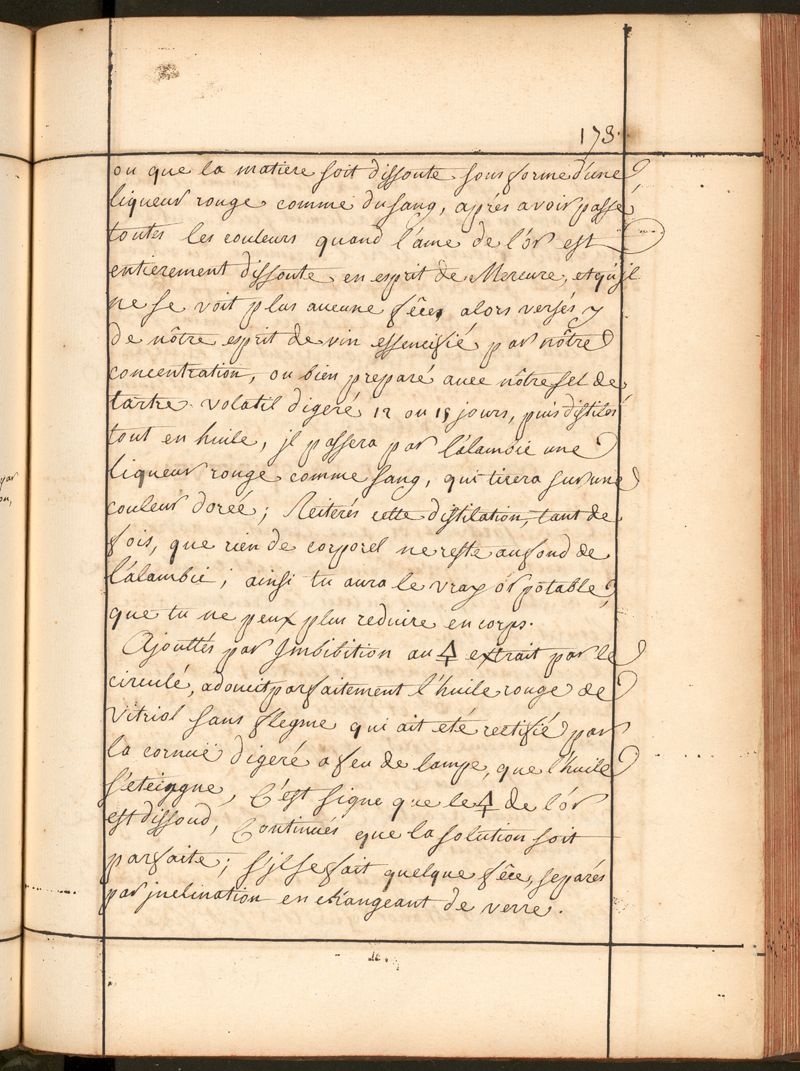 173.
ou que la matiere soit dissoute sous forme d'une
liqueur rouge comme du sang, aprés avoir passé
toutes les couleurs quand l'ame de l'or est
entierement dissoute en esprit de Mercure, et qu'jl
ne se voit plus aucune fêces alors versés y
de nôtre esprit de vin essencifié par nôtre
concentration, ou bien preparé avec nôtre sel de
tartre volatil digeré 12 ou 15 jours, puis distilés
tout en huile, jl passera par l'alambic une
liqueur rouge comme sang, qui tirera sur une
couleur dorée; Reiterés cette distilation, tant de
fois, que rien de corporel ne reste au fond de
l'alambic; ainsi tu aura le vray or potable,
que tu ne peux plus reduire en corps.
Ajouttés par Jmbibition au 🜍 extrait par le
circulé, adoucit parfaitement l'huile rouge de
Vitriol sans flegme qui ait eté rectifié par
la cornuë digeré a feu de lampe, que l'huile
s'éteigne, C'est signe que le 🜍 de l'or
est dissoud, Continués que la solution soit
parfaite; s'jl se fait quelque fêce, separés
par jnclination en changeant de verre.